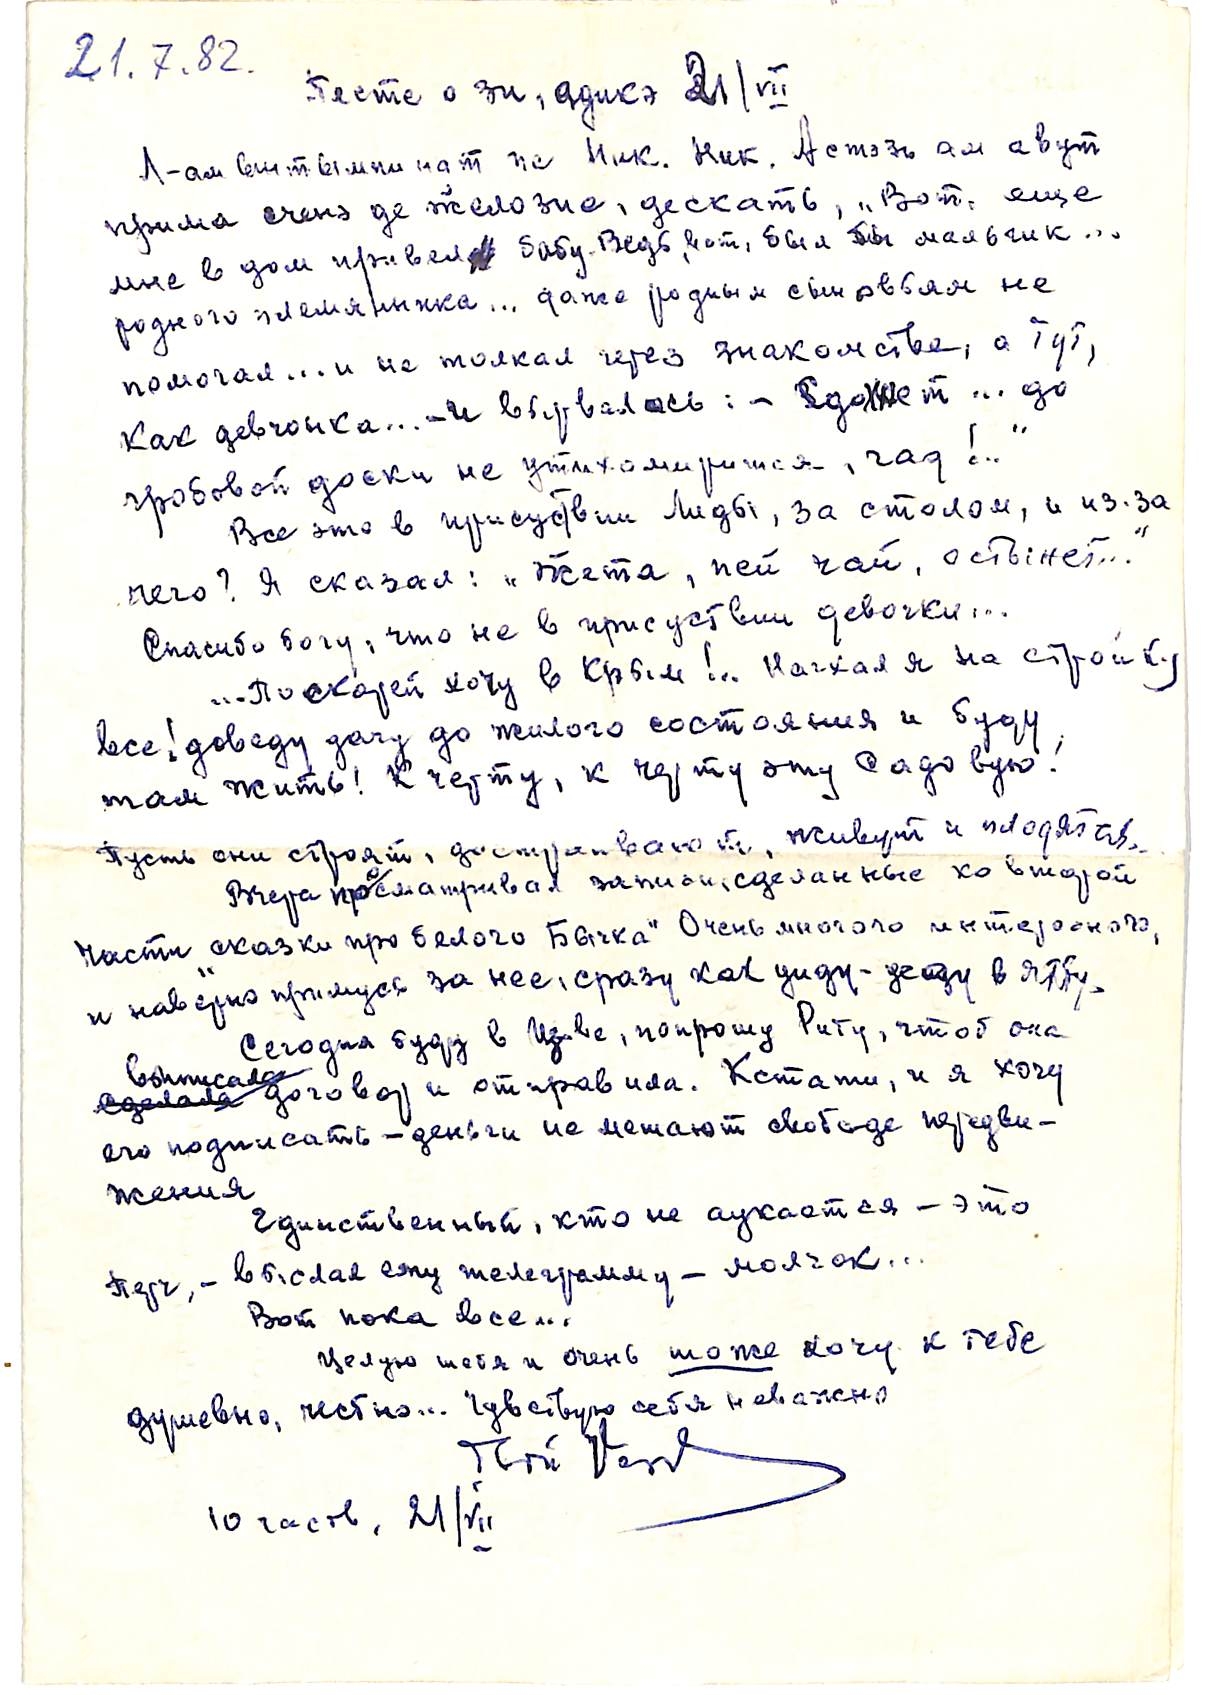 21.7.82.
Песте о зи, адикэ 21/VII
Л-ам вынтымпинат пе Ник. Ник. Астэзь ам авут
прима сченэ де желозие, дескать, „Вот, еще
мне в дом привел бабу. Ведь, вот, был бы мальчик...
родного племянника... даже родным сыновьям не
помогал... и не толкал через знакомства, а тут,
как девчонка... – И взорвалась: – Сдохнет... до
гробовой доски не утихомирится, гад!.."
Все это в присуствии Лиды, за столом, и из-за
чего? Я сказал: „Жета, пей чай, остынет..."
Спасибо богу, что не в присуствии девочки...
...Поскорей хочу в Крым!.. Начхал я на стройку
все! доведу дачу до жилого состояния и буду
там жить! К черту, к черту эту Садовую!
Пусть они строят, достраивают, живут и плодятся...
Вчера просматривал записи, сделанные ко второй
части „сказки про белого Бычка" Очень много интересного,
и наверно примусь за нее, сразу как уйду-уеду в Ялту.
Сегодня буду в Из-ве, попрошу Риту, чтоб она
выписала
сделала договор и отправила. Кстати, и я хочу
его подписать – деньги не мешают свободе передви-
жения
Единственный, кто не аукается – это
Перч, – выслал ему телеграмму – молчок...
Вот пока все...
Целую тебя и очень тоже хочу к тебе
душевно, честно... Чувствую себя неважно
Твой
10 часов, 21/VII